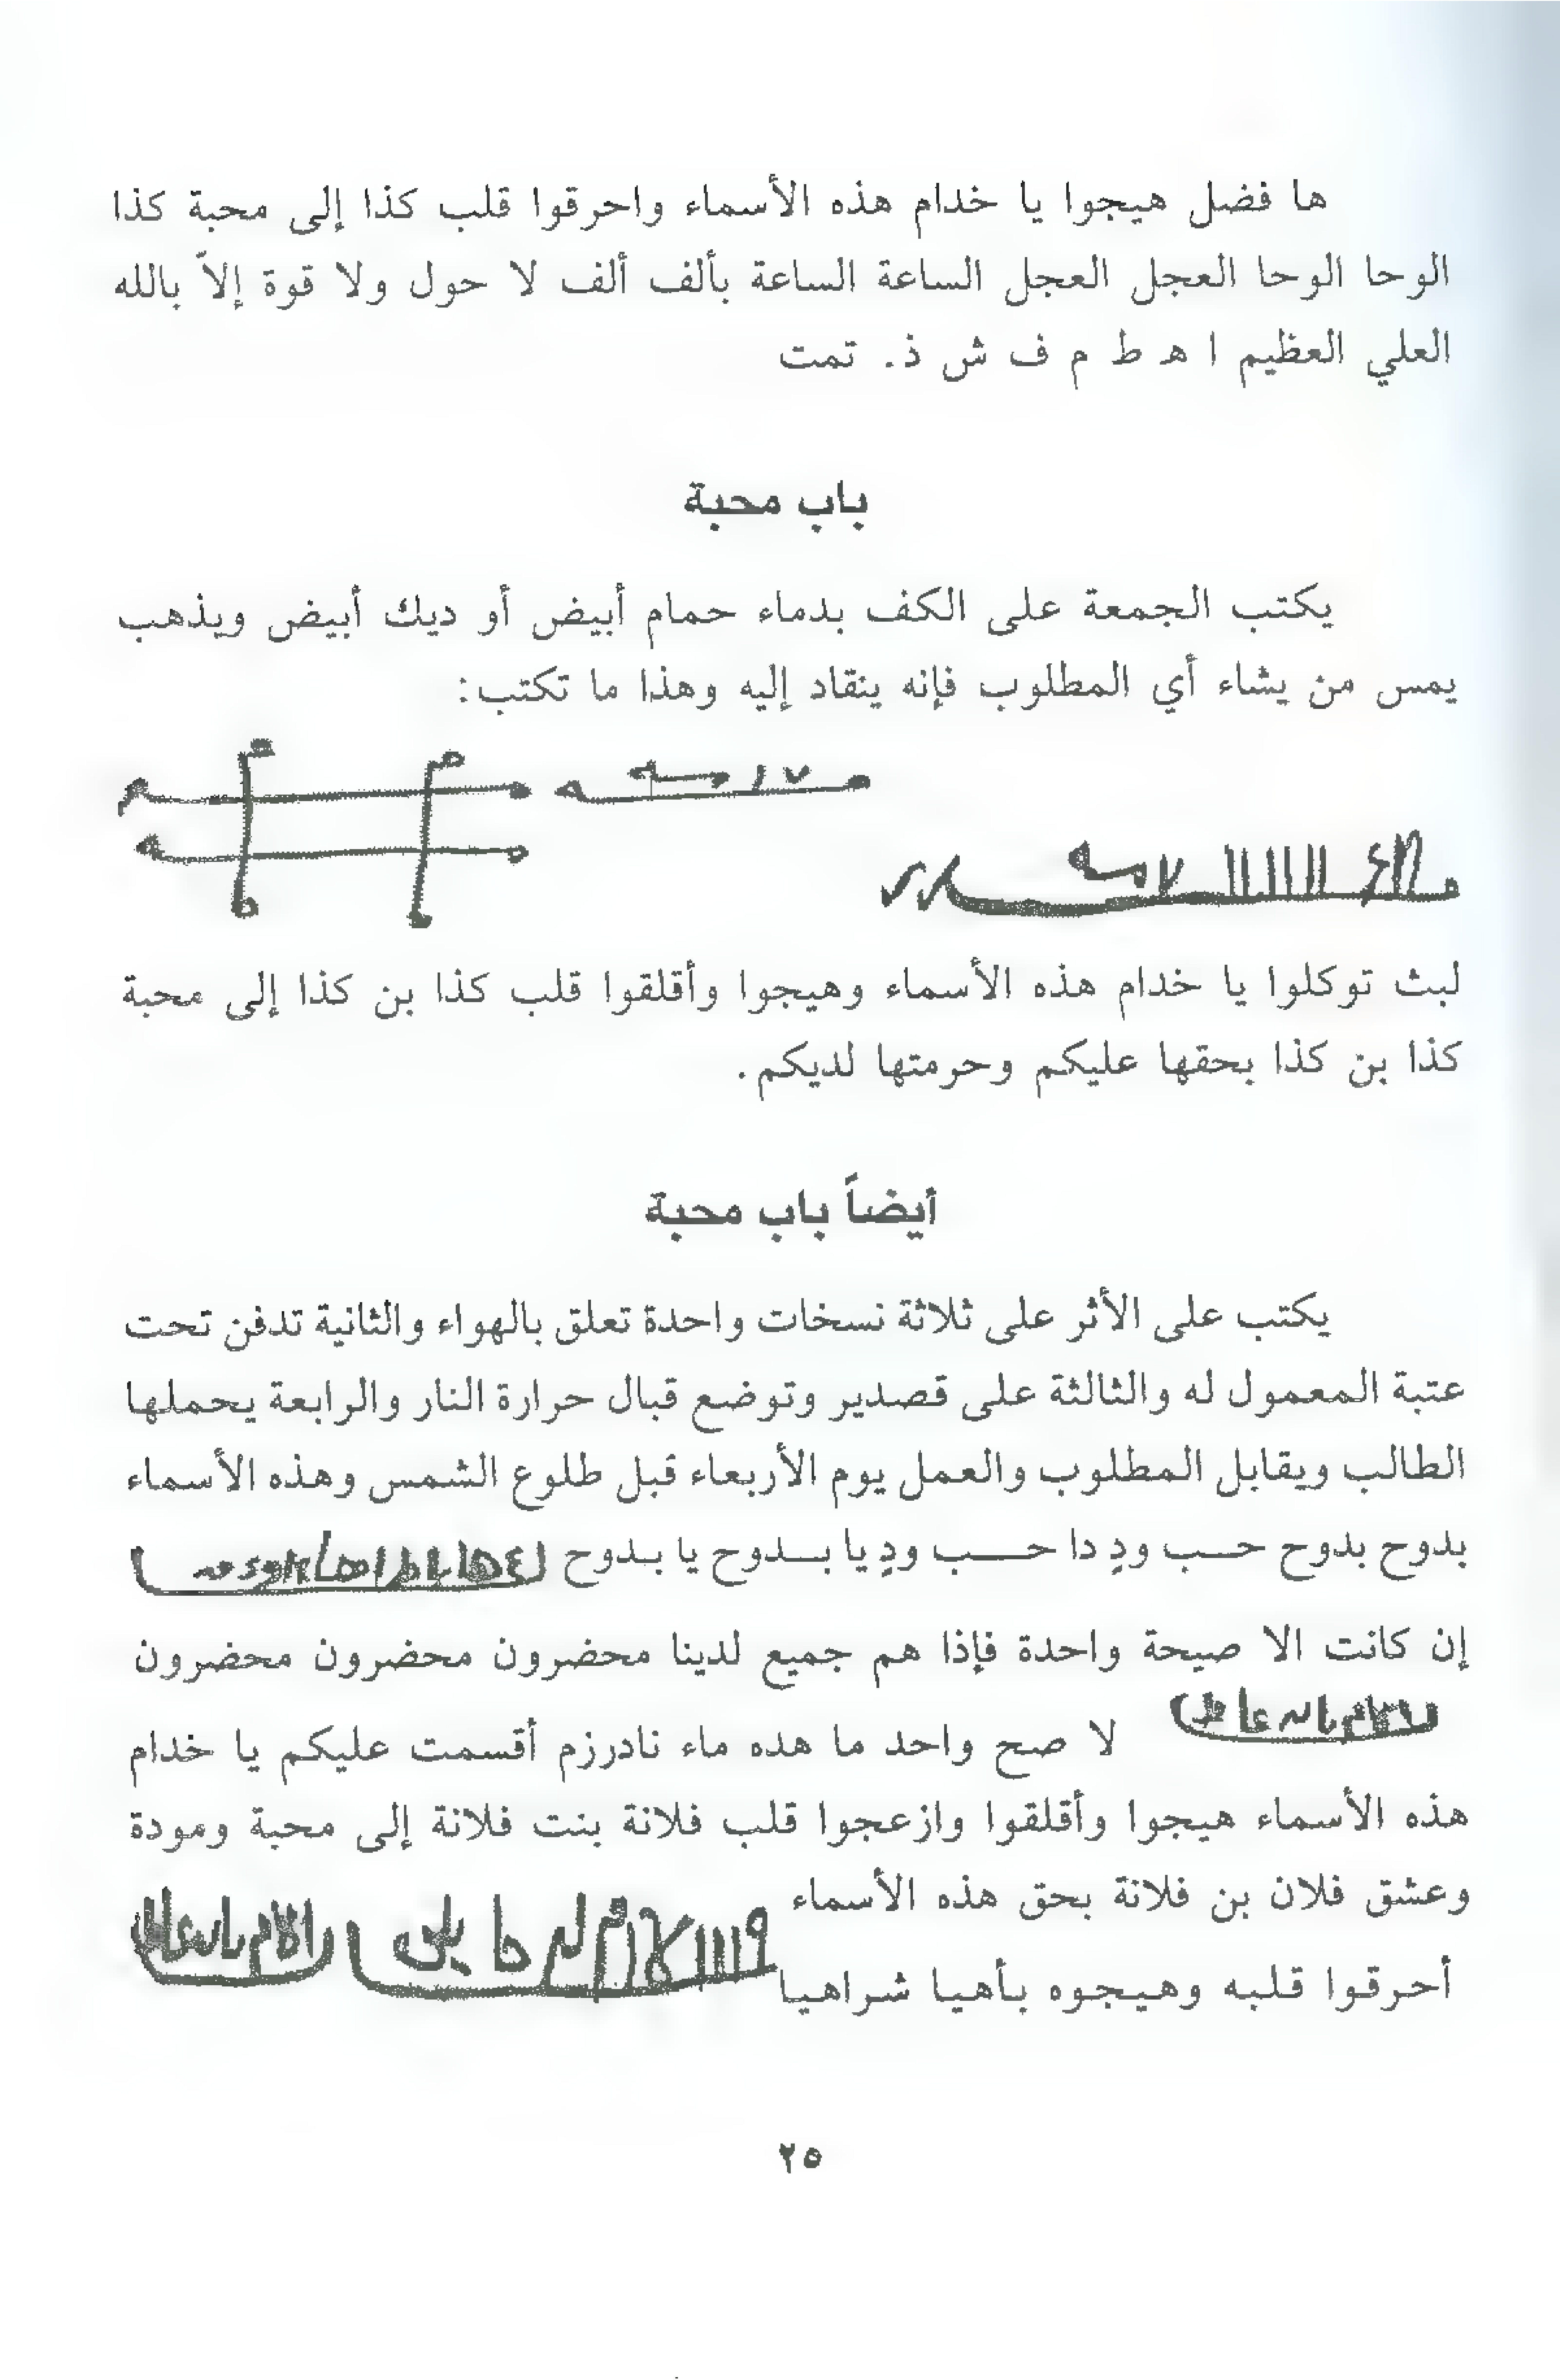 ها فضل هيجوا يا خدام هذه الأسماء واحرقوا قلب كذا إلى محبة كذا
الوحا الوحا العجل العجل الساعة الساعة بألف ألف لا حول ولا قوة إلاّ بالله
العلي العظيم ا هـ ط م ف ش ذ. تمت
باب محبة
يكتب الجمعة على الكف بدماء حمام أبيض أو ديك أبيض ويذهب
يمس من يشاء أي المطلوب فإنه ينقاد إليه وهذا ما تكتب:
لبث توكلوا يا خدام هذه الأسماء وهيجوا وأقلقوا قلب كذا بن كذا إلى محبة
كذا بن كذا بحقها عليكم وحرمتها لديكم.
أيضاً باب محبة
يكتب على الأثر على ثلاثة نسخات واحدة تعلق بالهواء والثانية تدفن تحت
عتبة المعمول له والثالثة على قصدير وتوضع قبال حرارة النار والرابعة يحملها
الطالب ويقابل المطلوب والعمل يوم الأربعاء قبل طلوع الشمس وهذه الأسماء
بدوح بدوح حب ودٍ دا حب ودٍ يا بدوح يا بدوح
إن كانت الا صيحة واحدة فإذا هم جميع لدينا محضرون محضرون محضرون
لا صح واحد ما هده ماء نادرزم أقسمت عليكم يا خدام
هذه الأسماء هيجوا وأقلقوا وازعجوا قلب فلانة بنت فلانة إلى محبة ومودة
وعشق فلان بن فلانة بحق هذه الأسماء
أحرقوا قلبه وهيجوه بأهيا شراهيا
٢٥